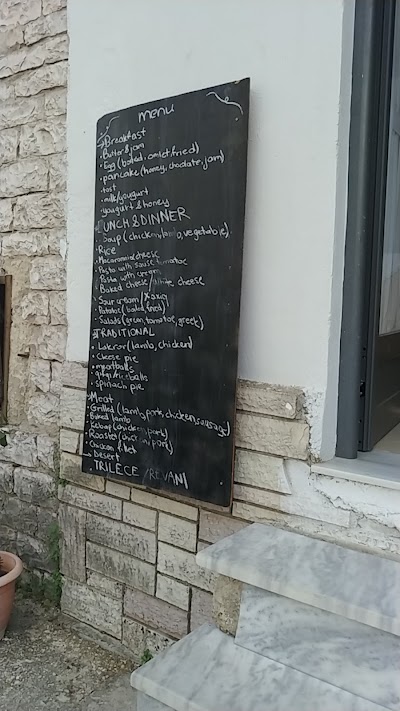 menu
Breakfast
• Butter & jam
• Egg (boiled, omlet, fried)
• pancake (honey, choclate, jam)
• tost
• milk/yougurt
• yougurt & honey
LUNCH & DINNER
• Soup (chicken, lamb, vegetable)
• Rice
• Macaroni & cheese
• Pasta with sause tomatoe
• Pasta with cream
• Baked cheese / white cheese
• Sour cream /
• Potatos (boiled, fried)
• Salads (green, tomatoe, greek)
TRADITIONAL
• Lakror (lamb, chicken)
• cheese pie
• meatballs
• qifqi/riceballs
• spinach pie
Meat
• Grilled (lamb, pork, chicken, sausage)
• Baked lamb
• Kebap (chicken, pork)
• Roasted (chicken, pork)
• Chicken fillet
Desert
TRILECE / REVANI